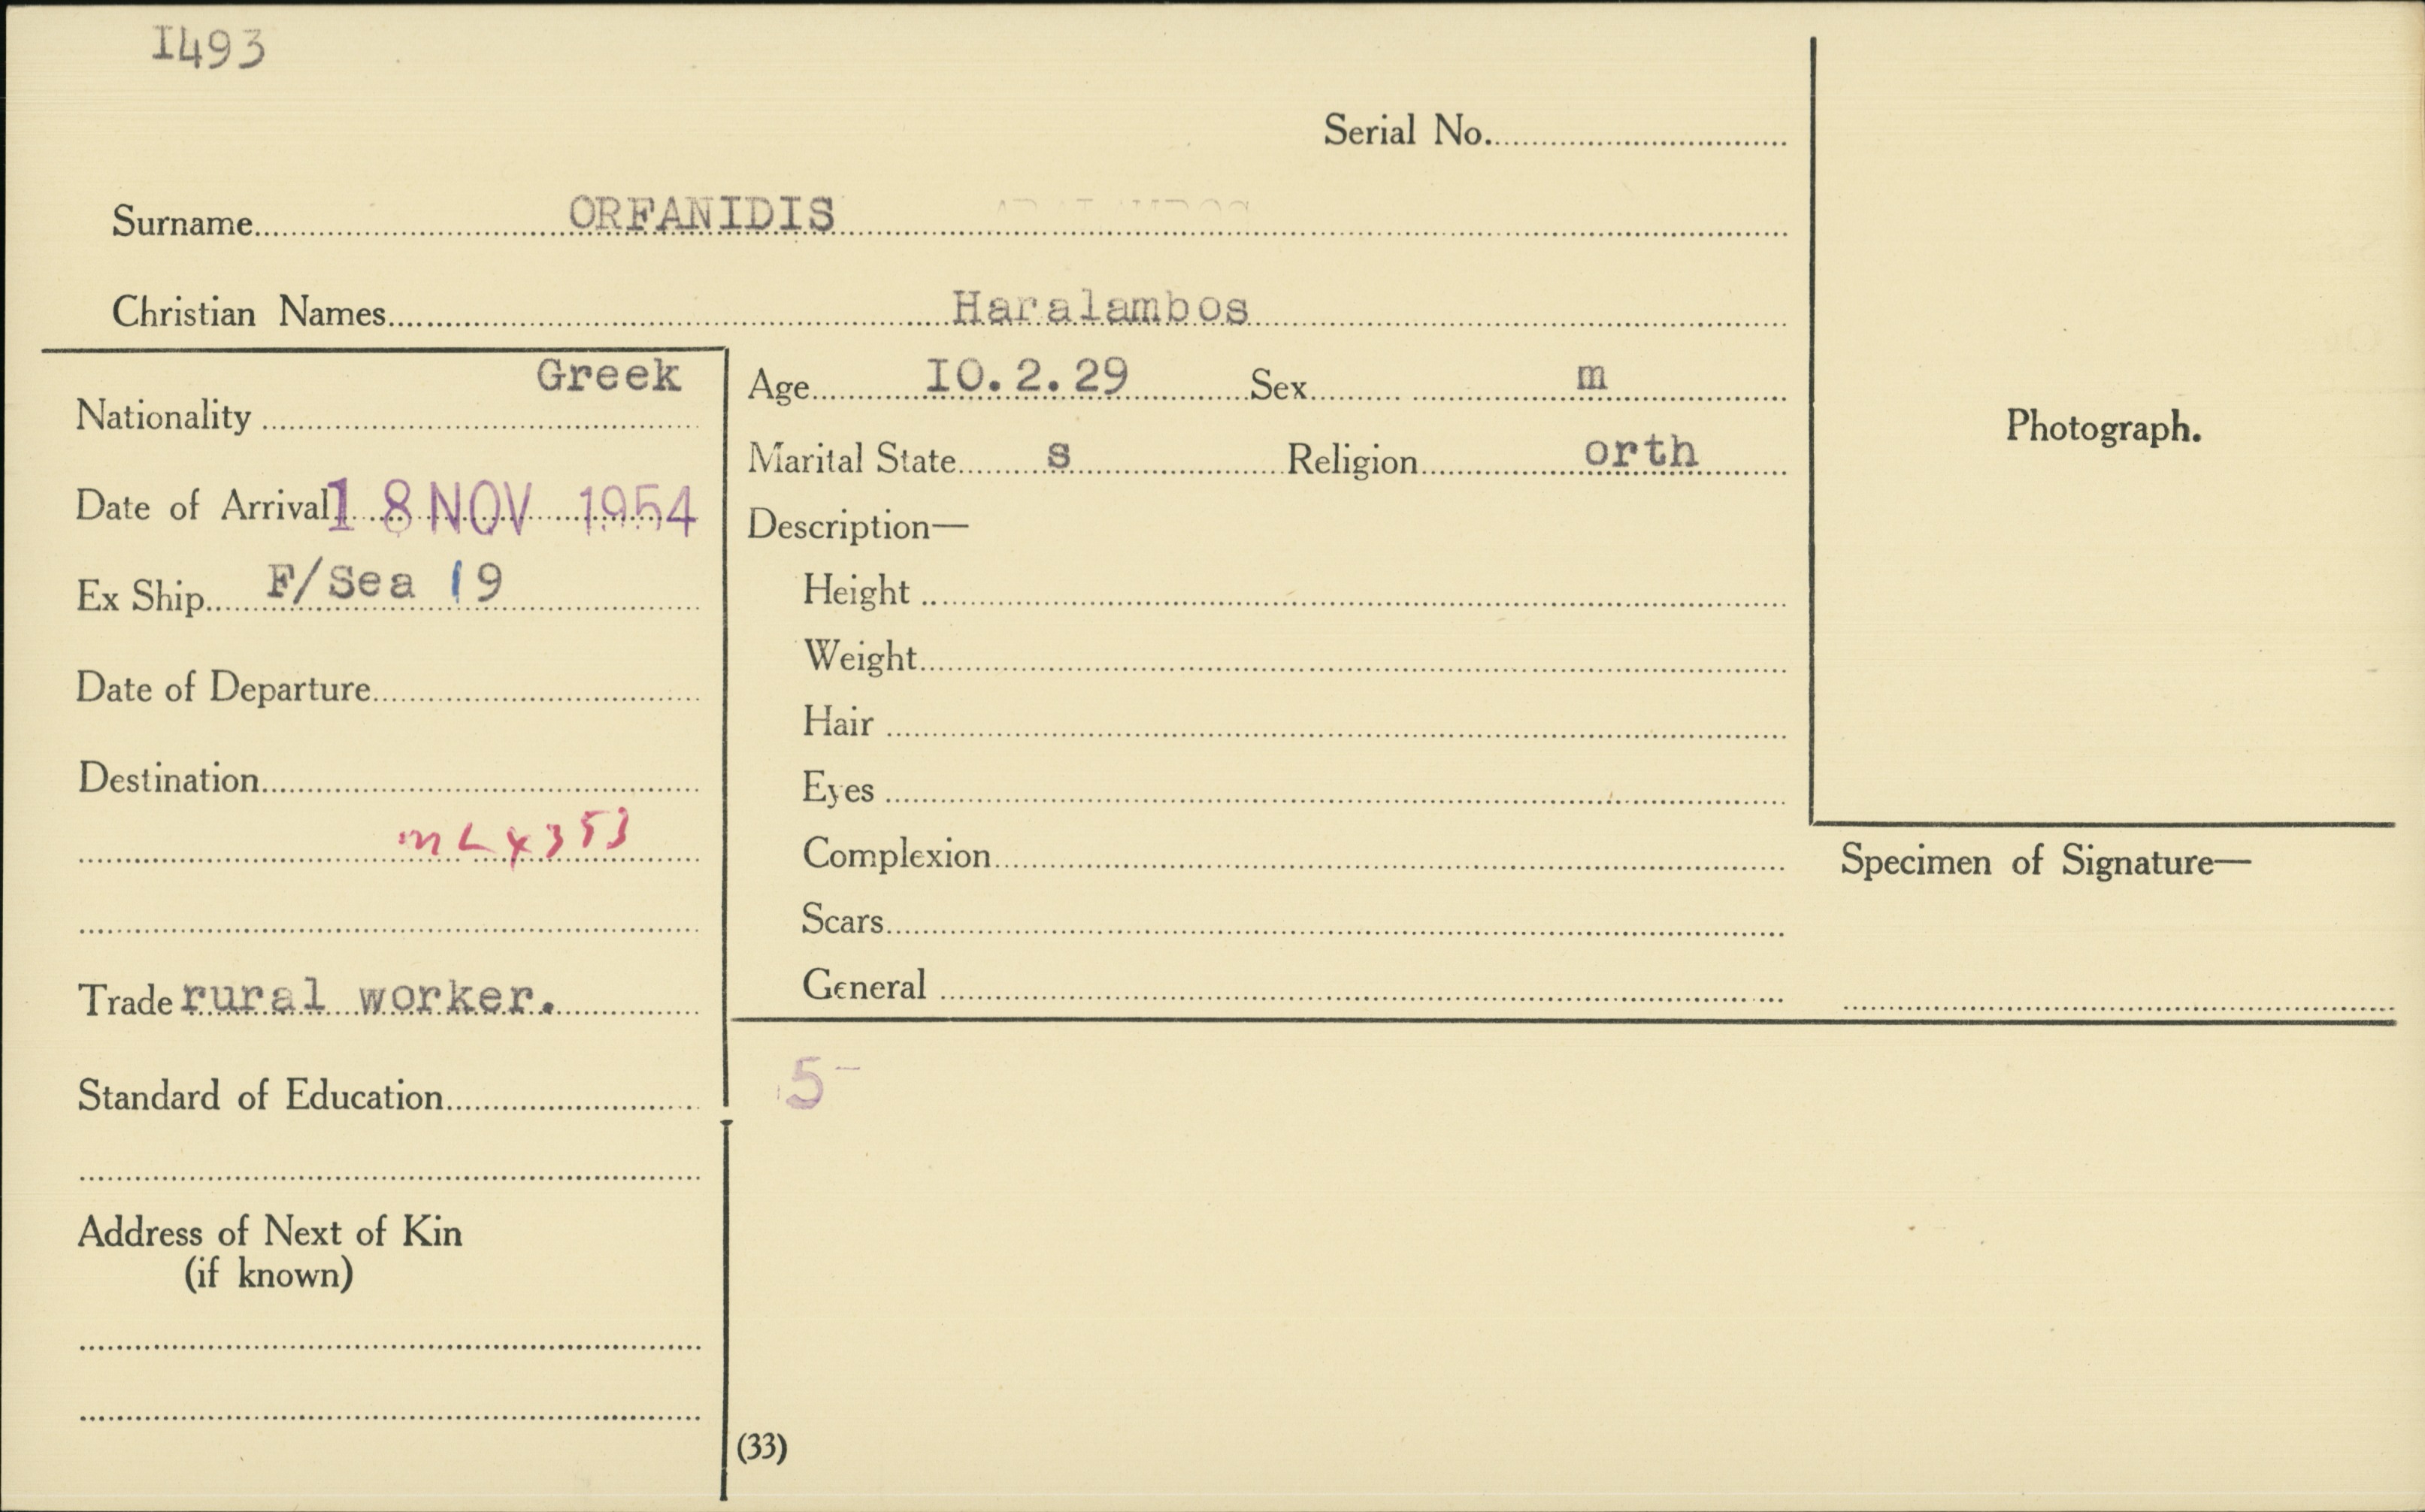 I493
Serial No.
Surname ORFANIDIS
Christian Names Haralambos
Nationality Greek
Date of Arrival 18 NOV 1954
Ex Ship F/Sea 19
Date of Departure
Destination
mL4353
Trade rural worker.
Standard of Education
Address of Next of Kin
(if known)
Age IO.2.29 Sex m
Marital State s Religion orth
Description—
Height
Weight
Hair
Eyes
Complexion
Scars
General
5-
(33)
Photograph.
Specimen of Signature—